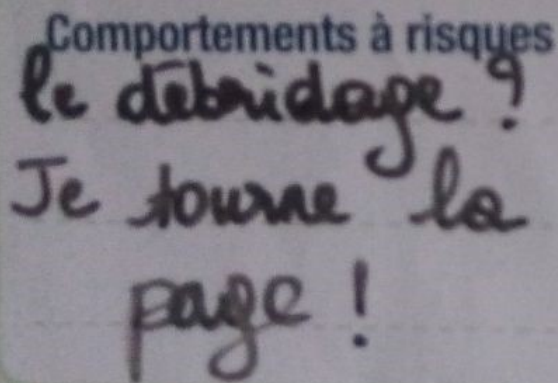 Comportements à risques
le débridage ?
Je tourne la
page !